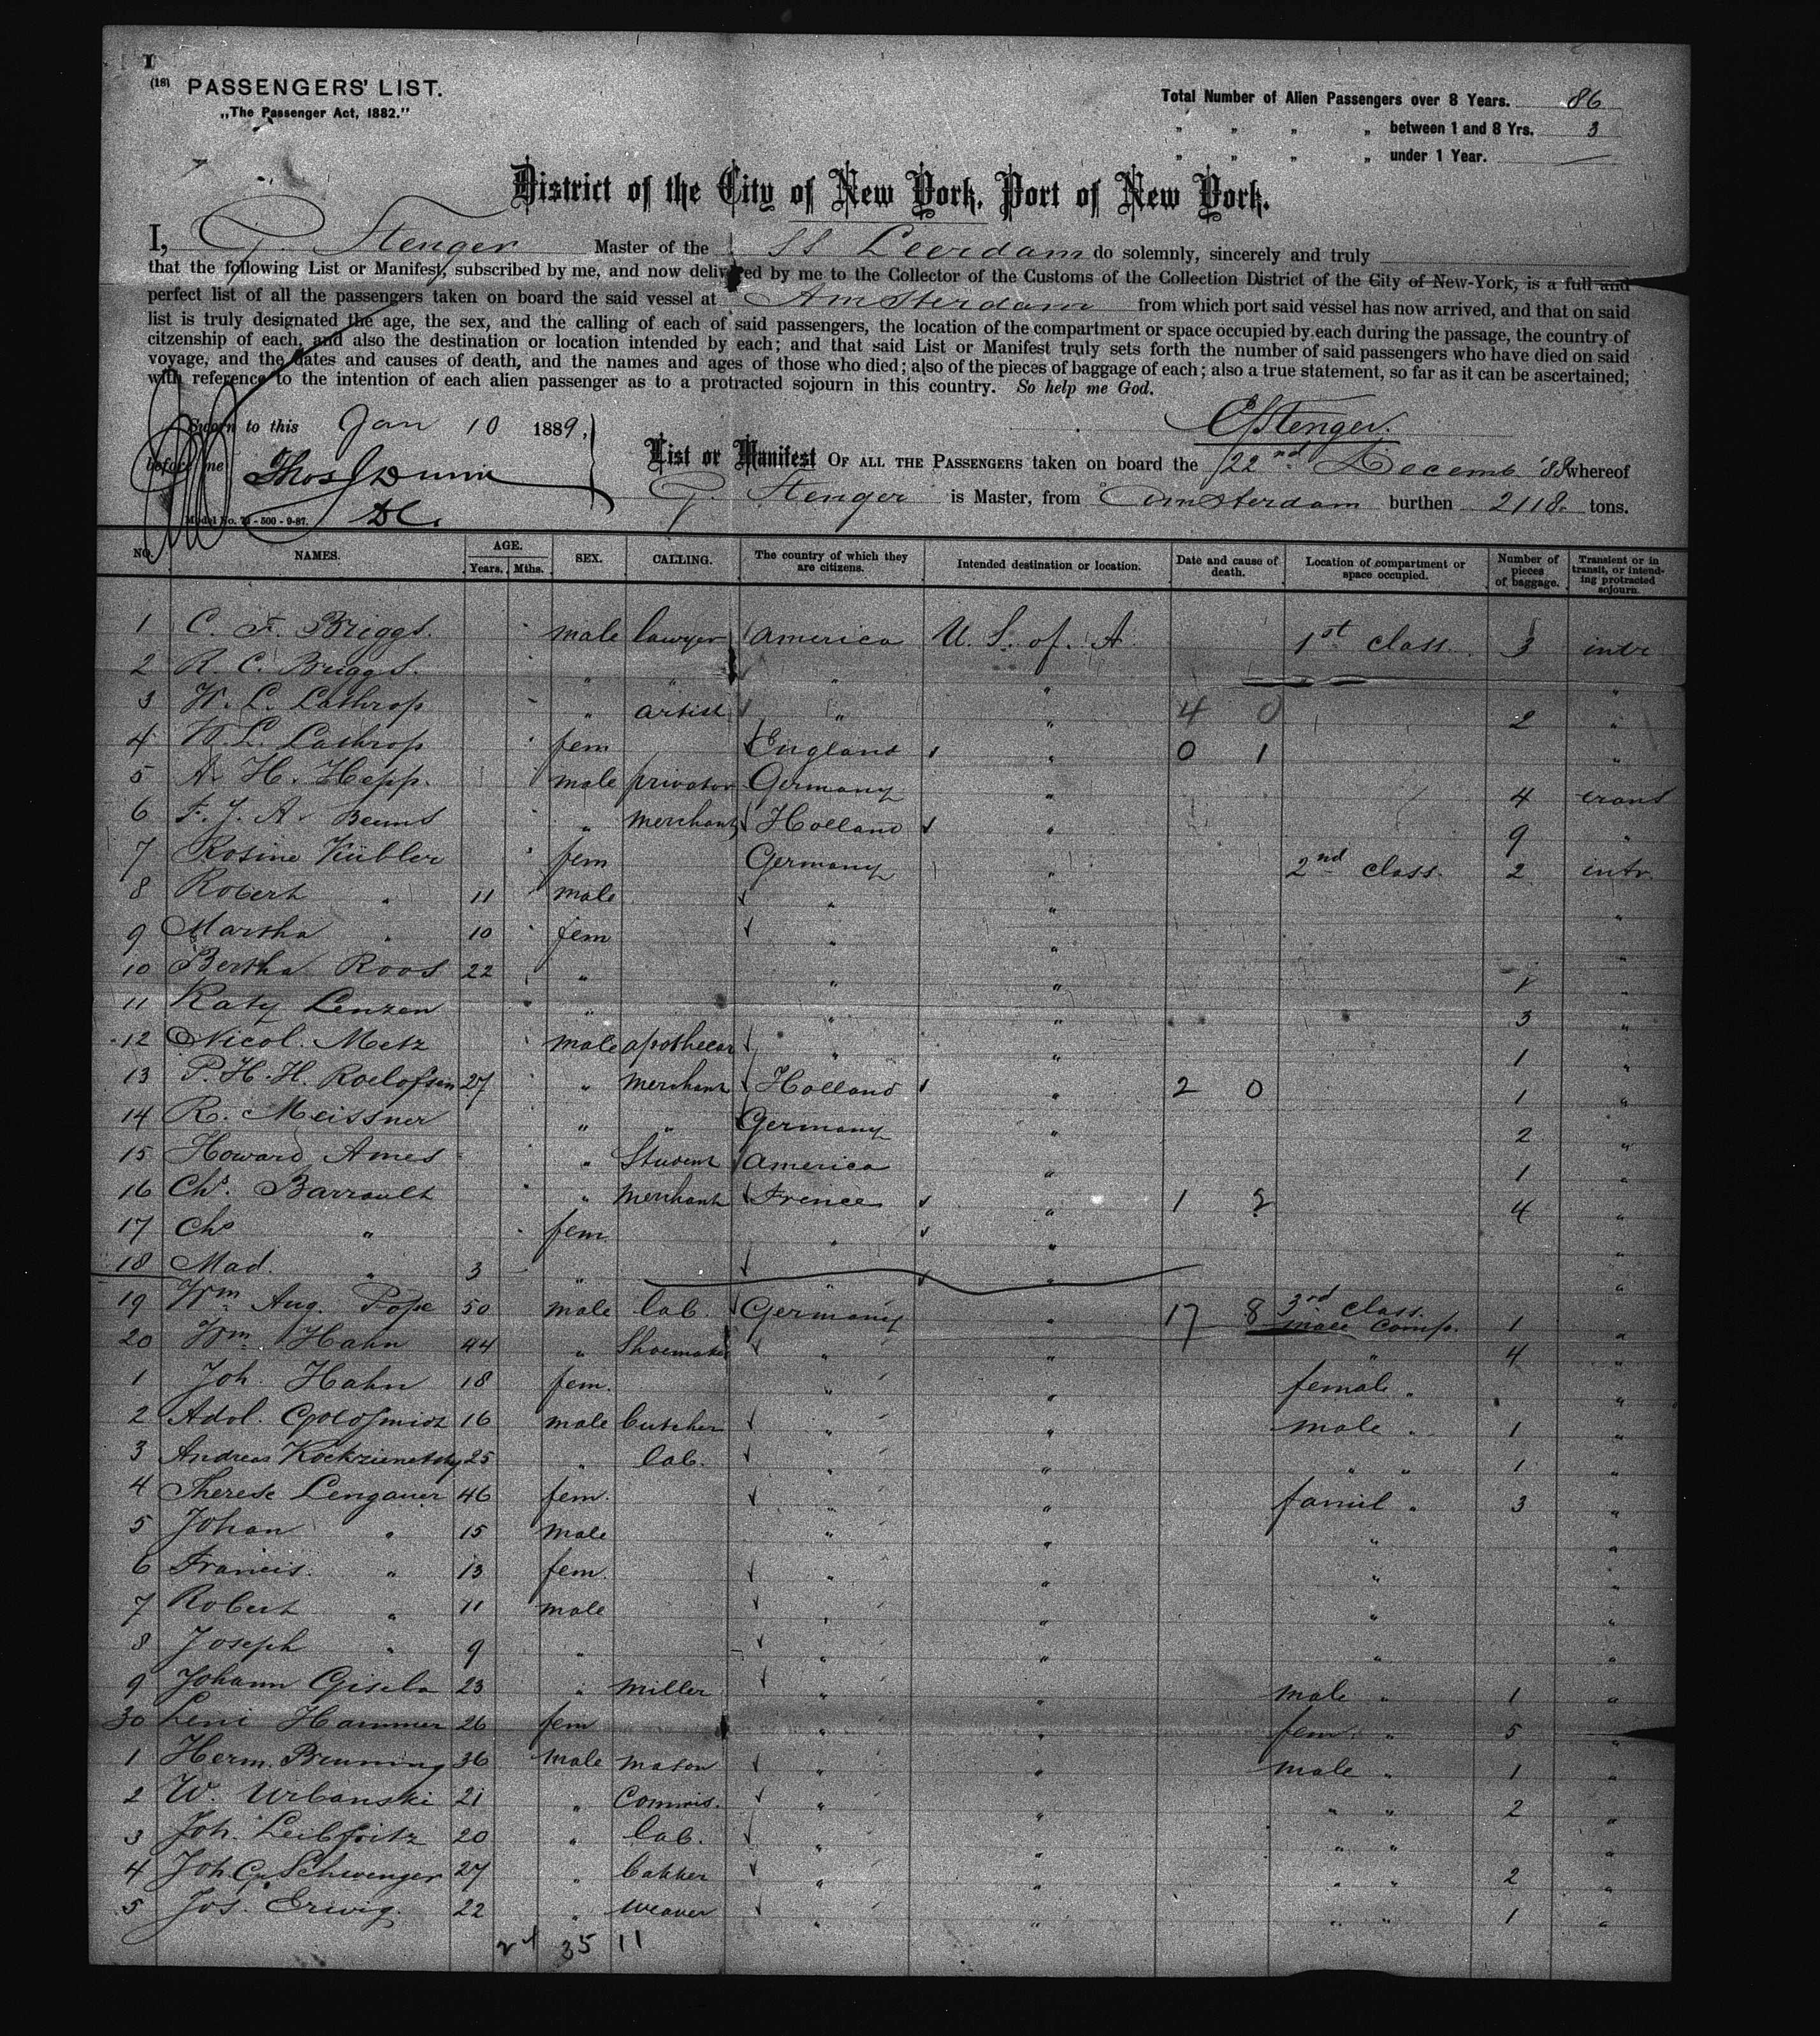 I
(18) PASSENGERS' LIST.
„The Passenger Act, 1882.”
Total Number of Alien Passengers over 8 Years. 86
„ „ „ „ between 1 and 8 Yrs. 3
„ „ „ „ under 1 Year. —
District of the City of New York, Port of New York.
I, G. Stenger Master of the SS Leerdam do solemnly, sincerely and truly
that the following List or Manifest, subscribed by me, and now delivered by me to the Collector of the Customs of the Collection District of the City of New-York, is a full and
perfect list of all the passengers taken on board the said vessel at Amsterdam from which port said vessel has now arrived, and that on said
list is truly designated the age, the sex, and the calling of each of said passengers, the location of the compartment or space occupied by each during the passage, the country of
citzenship of each, and also the destination or location intended by each; and that said List or Manifest truly sets forth the number of said passengers who have died on said
voyage, and the dates and causes of death, and the names and ages of those who died; also of the pieces of baggage of each; also a true statement, so far as it can be ascertained;
with reference to the intention of each alien passenger as to a protracted sojourn in this country. So help me God.
Sworn to this Jan 10 1889,
before me Thos J Dunn
DC.
Model No. - 500 - 9-87.
G Stenger.
List or Manifest OF ALL THE PASSENGERS taken on board the 22nd Decemb '88 whereof
G. Stenger is Master, from Amsterdam burthen 2118 tons.
NO. NAMES. AGE. Years. Mths. SEX. CALLING. The country of which they are citizens. Intended destination or location. Date and cause of death. Location of compartment or space occupied. Number of pieces of baggage. Transient or in transit, or intending protracted sojourn.
1 C. F. Briggs. male lawyer America U. S. of. A. 1st class. 3 intr
2 R. C. Briggs. „ „ „ „ „
3 W. L. Lathrop „ artist „ „ 4 0 2 „
4 W. L. Lathrop fem England „ 0 1 „
5 A. H. Hepp. male privator Germany „ 4 trans
6 F. J. A. Beuns „ merchant Holland „ 9 „
7 Rosine Kübler fem Germany „ 2nd class. 2 intr.
8 Robert „ 11 male „ „ „
9 Martha „ 10 fem „ „ „
10 Bertha Roos 22 „ „ „ 1 „
11 Katy Lenzen „ „ „ 3 „
12 Nicol. Metz male apothecar „ „ 1 „
13 P. H. H. Roelofsen 27 „ merchant Holland „ 2 0 1 „
14 R. Meissner „ „ Germany „ 2 „
15 Howard Ames „ Student America „ 1 „
16 Chs. Barrault „ merchant Frence „ 1 2 4 „
17 Chs „ fem „ „ „
18 Mad. „ 3 „ „ „ „
19 Wm. Aug. Pope 50 male lab. Germany „ 17 8 3rd class. male comp. 1 „
20 Wm. Hahn 44 „ Shoemaker „ „ „ 4 „
1 Joh. Hahn 18 fem. „ „ female „ „
2 Adol. Goldsmidt 16 male butcher „ „ male „ 1 „
3 Andreas 25 „ lab. „ „ „ „ 1 „
4 Therese Lengauer 46 fem. „ „ famil „ 3 „
5 Johan „ 15 male „ „ „ „
6 Francis. „ 13 fem. „ „ „ „
7 Robert „ 11 male „ „ „ „
8 Joseph „ 9 „ „ „ „ „
9 Johann Gisela 23 „ miller „ „ male „ 1 „
30 Leni Hammer 26 fem „ „ fem „ 5 „
1 Herm. Brunning 36 male mason „ „ male „ 1 „
2 W. Urbanski 21 „ Commis. „ „ „ „ 2 „
3 Joh. Leibfritz 20 „ lab. „ „ „ „ „
4 Joh. G. Schwenger 27 „ bakker „ „ „ „ 2 „
5 Jos. Erwig. 22 „ weaver „ „ „ „ 1 „
24 35 11